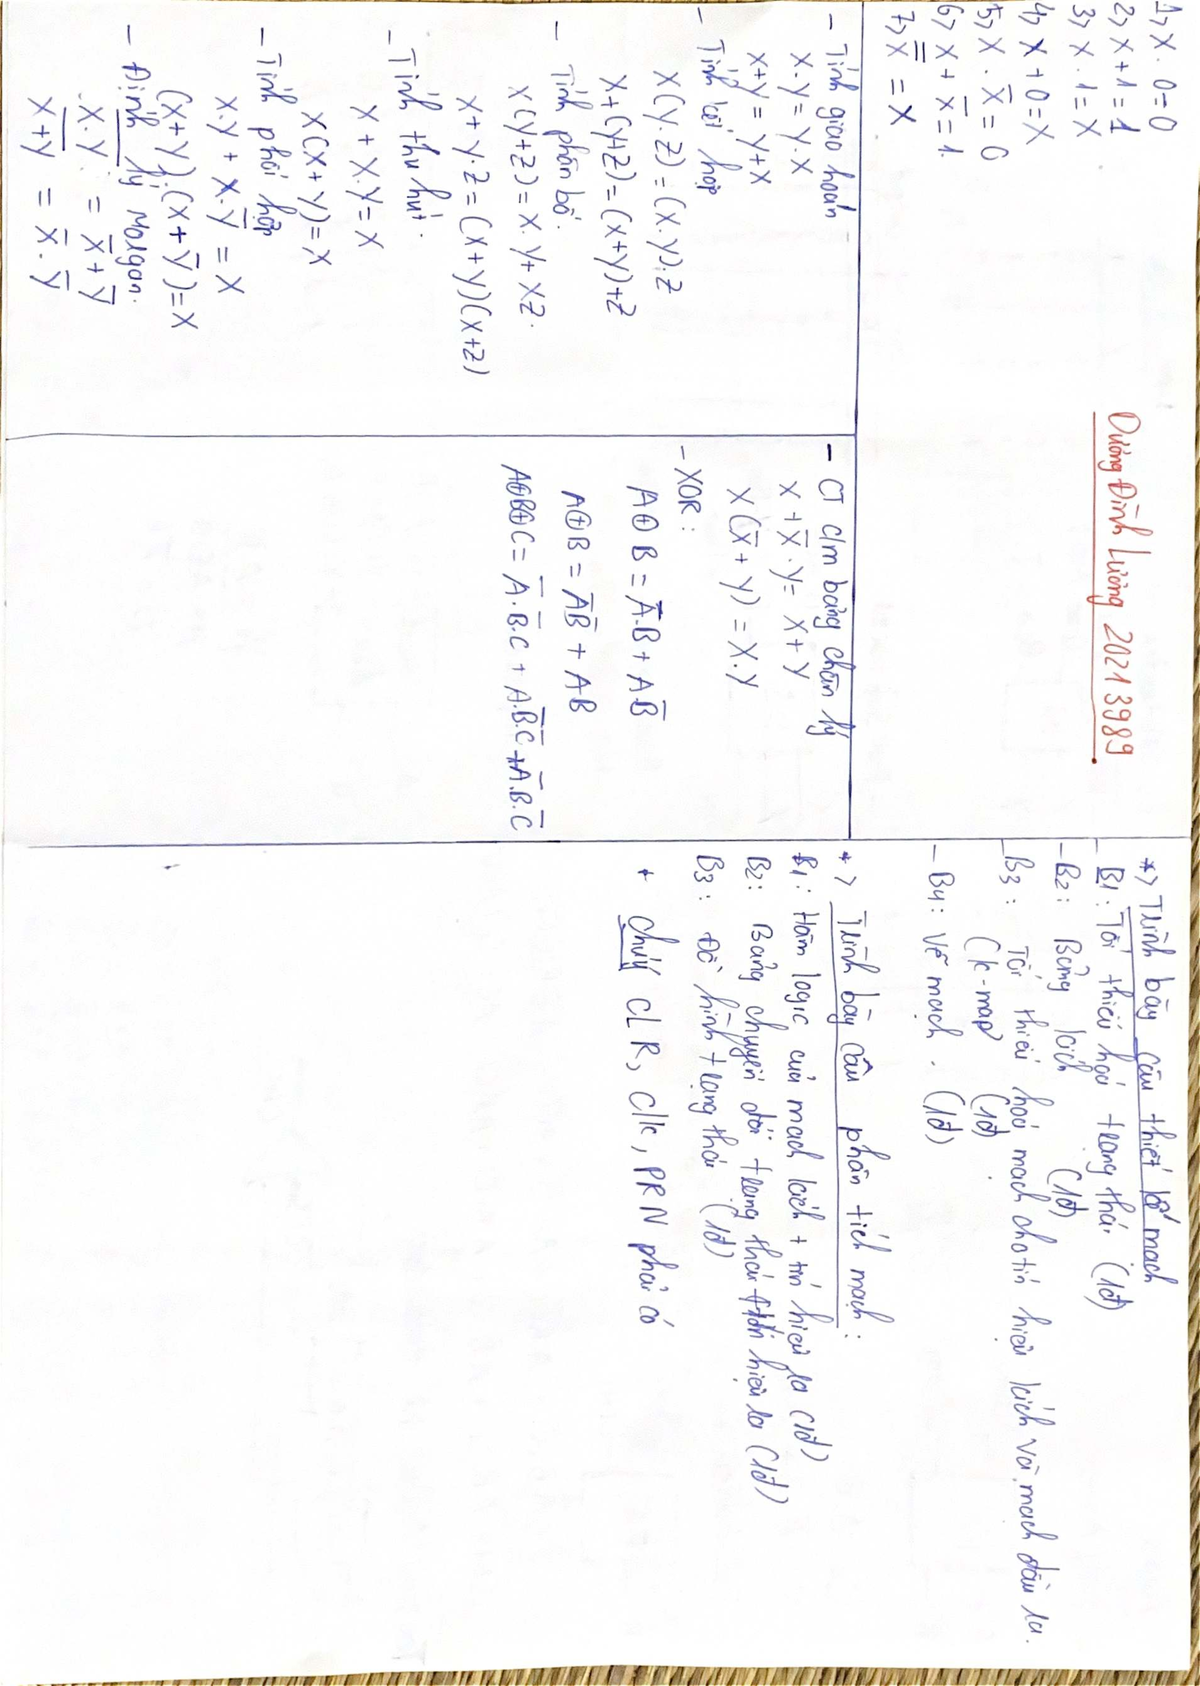 1> X . 0 = 0
2> X + 1 = 1
3> X . 1 = X
4> X + 0 = X
5> X . X̅ = 0
6> X + X̅ = 1.
7> X̿ = X
Dương Đình Lương 20213989.
- Tính giao hoán
X . Y = Y . X
X + Y = Y + X
- Tính kết hợp
X(Y . Z) = (X . Y) . Z
X + (Y + Z) = (X + Y) + Z
- Tính phân bố.
X(Y + Z) = X . Y + XZ.
X + Y . Z = (X + Y)(X + Z)
- Tính thu hút.
X + X.Y = X
X(X + Y) = X
- Tính phối hợp
X.Y + X.Y̅ = X
(X + Y).(X + Y̅) = X
- Định lý Morgan.
X̅.̅Y̅ = X̅ + Y̅
X̅+̅Y̅ = X̅ . Y̅
- CT c/m bằng chân lý
X + X̅ . Y = X + Y
X(X̅ + Y) = X.Y
- XOR :
A⊕B = A̅.B + AB̅
A⊕B = A̅B̅ + AB
A⊕B⊕C = A̅.B̅.C + A.B̅.C̅ + A̅.B.C̅
*> Trình bày câu thiết kế mạch
- B1: Tối thiểu hoá trạng thái (1đ)
- B2: Bảng kích (1đ)
- B3: Tối thiểu hoá mạch cho tín hiệu kích và mạch đầu ra.
(k-map) (1đ).
- B4: Vẽ mạch . (1đ)
*> Trình bày câu phân tích mạch :
B1: Hàm logic của mạch kích + tín hiệu ra (1đ)
B2: Bảng chuyển đổi trạng thái + tín hiệu ra (1đ)
B3: Đồ hình trạng thái (1đ)
+ chú ý CLR, Clk, PRN phải có